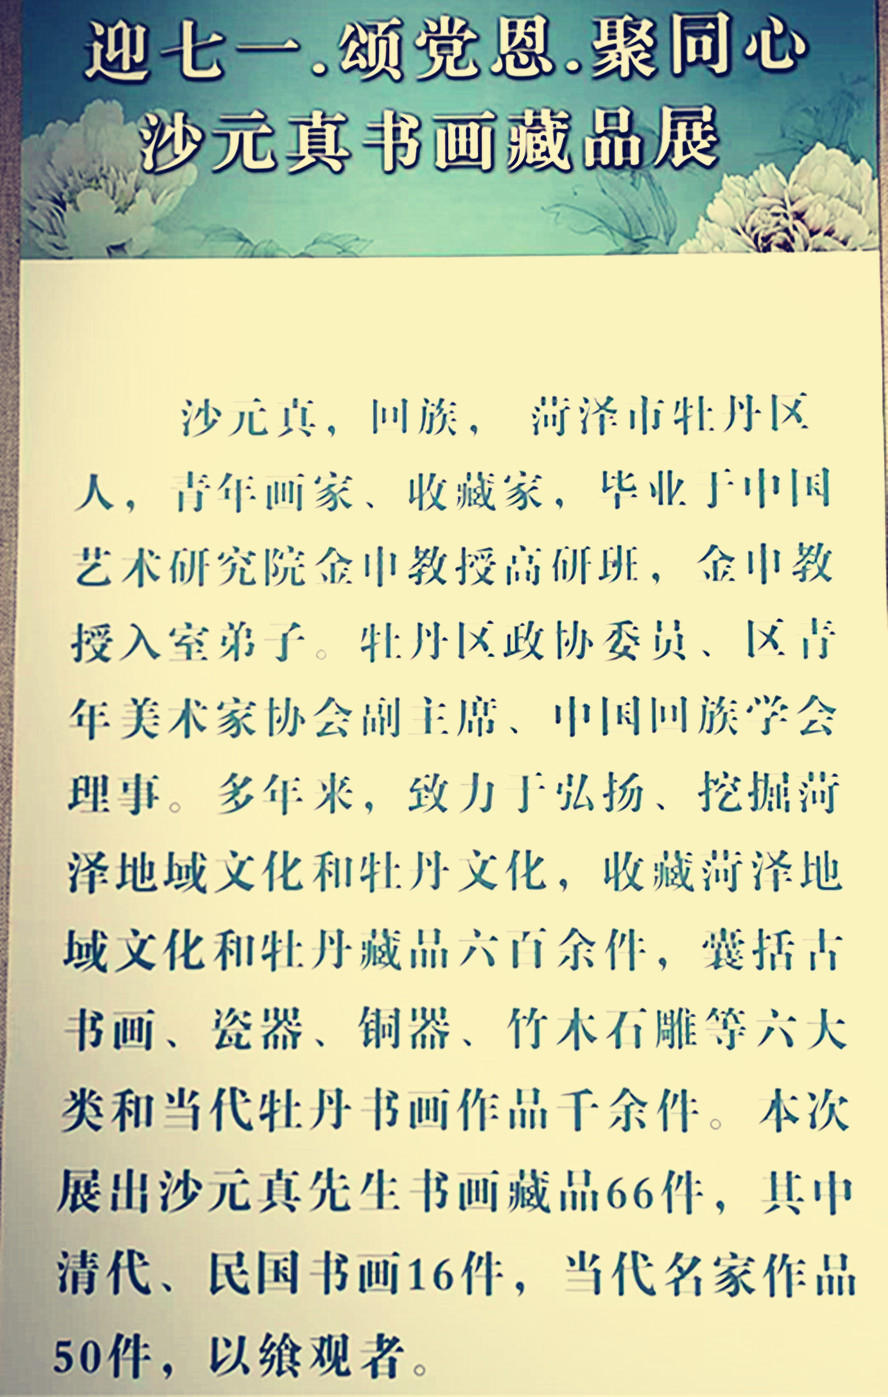 迎七一.颂党恩.聚同心
沙元真书画藏品展
沙元真，回族， 菏泽市牡丹区
人，青年画家、收藏家，毕业于中国
艺术研究院金申教授高研班，金申教
授入室弟子。牡丹区政协委员、区青
年美术家协会副主席、中国回族学会
理事。多年来，致力于弘扬、挖掘菏
泽地域文化和牡丹文化，收藏菏泽地
域文化和牡丹藏品六百余件，囊括古
书画、瓷器、铜器、竹木石雕等六大
类和当代牡丹书画作品千余件。本次
展出沙元真先生书画藏品66件，其中
清代、民国书画16件，当代名家作品
50件，以飨观者。